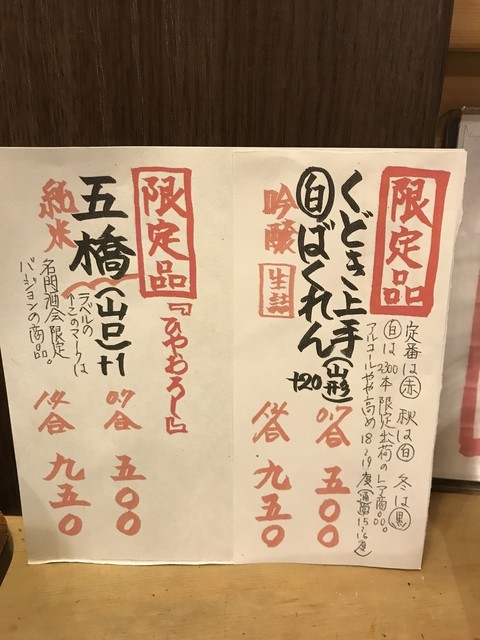 限定品
定番は赤 秋は白 冬は黒
白は2300本限定出荷のレア商品。
アルコールやや高め18~19度(通常15~16度)
くどき上手(山形)
白ばくれん +20
吟醸 生詰
合 五〇〇
合 九五〇
限定品
『ひやおろし』
五橋(山口)+1
ラベルの
このマークは
名門酒会限定
バージョンの商品。
純米
合 五〇〇
合 九五〇